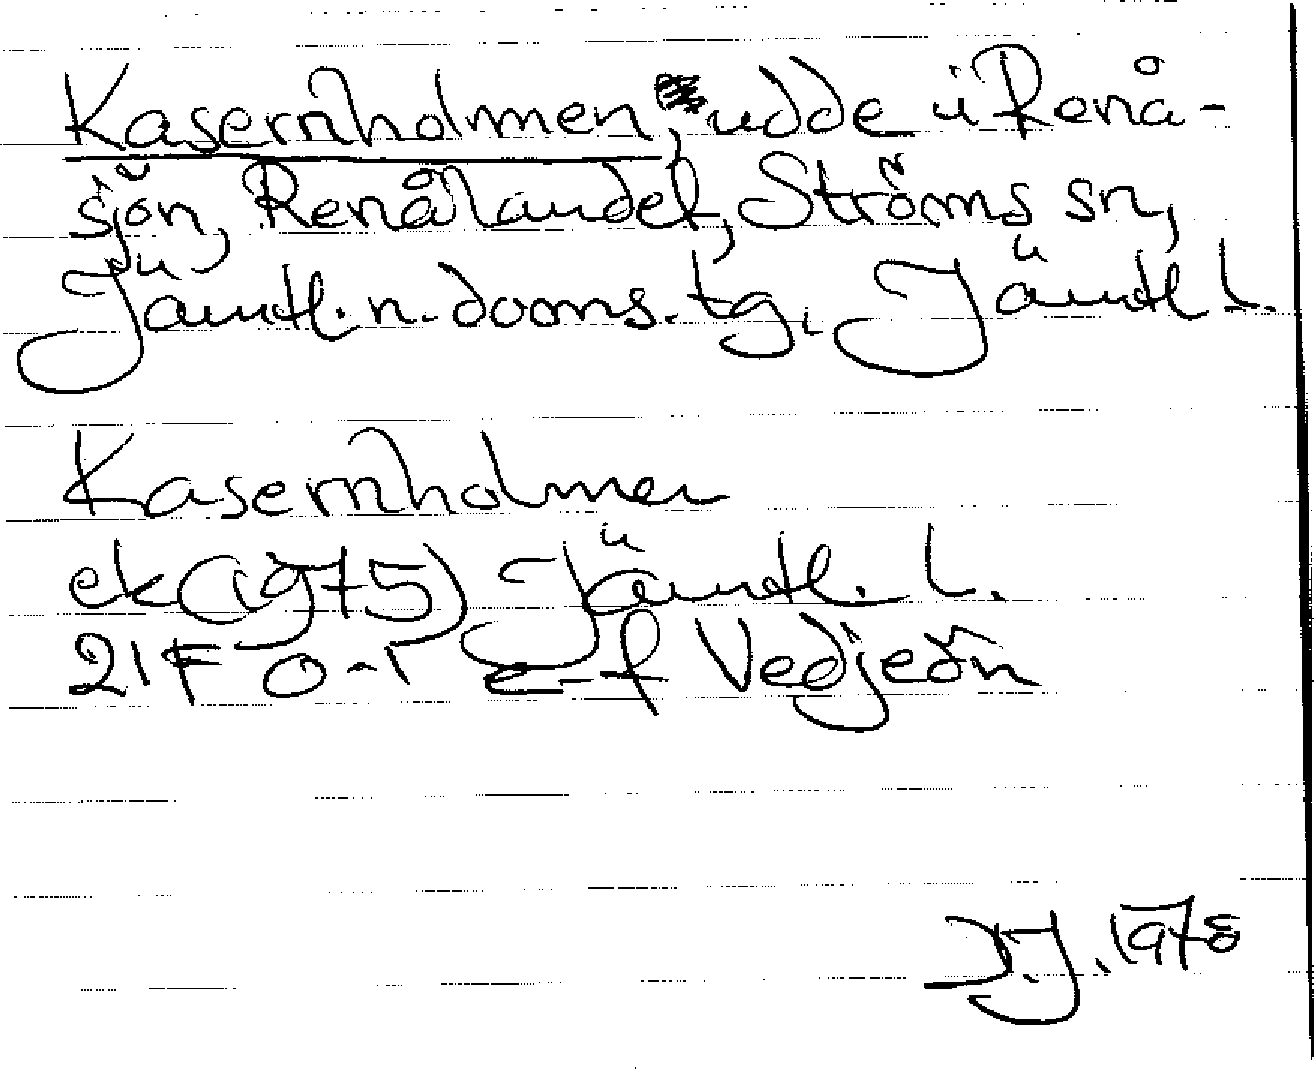 Kasernholmen, udde i Renå-
sjön, Renålandet, Ströms sn,
Jämtl. n. doms. tg, Jämtl L.
Kasernholmen
ek (1975) Jämtl. L.
21F 0-1 e-f Vedjeön
1978